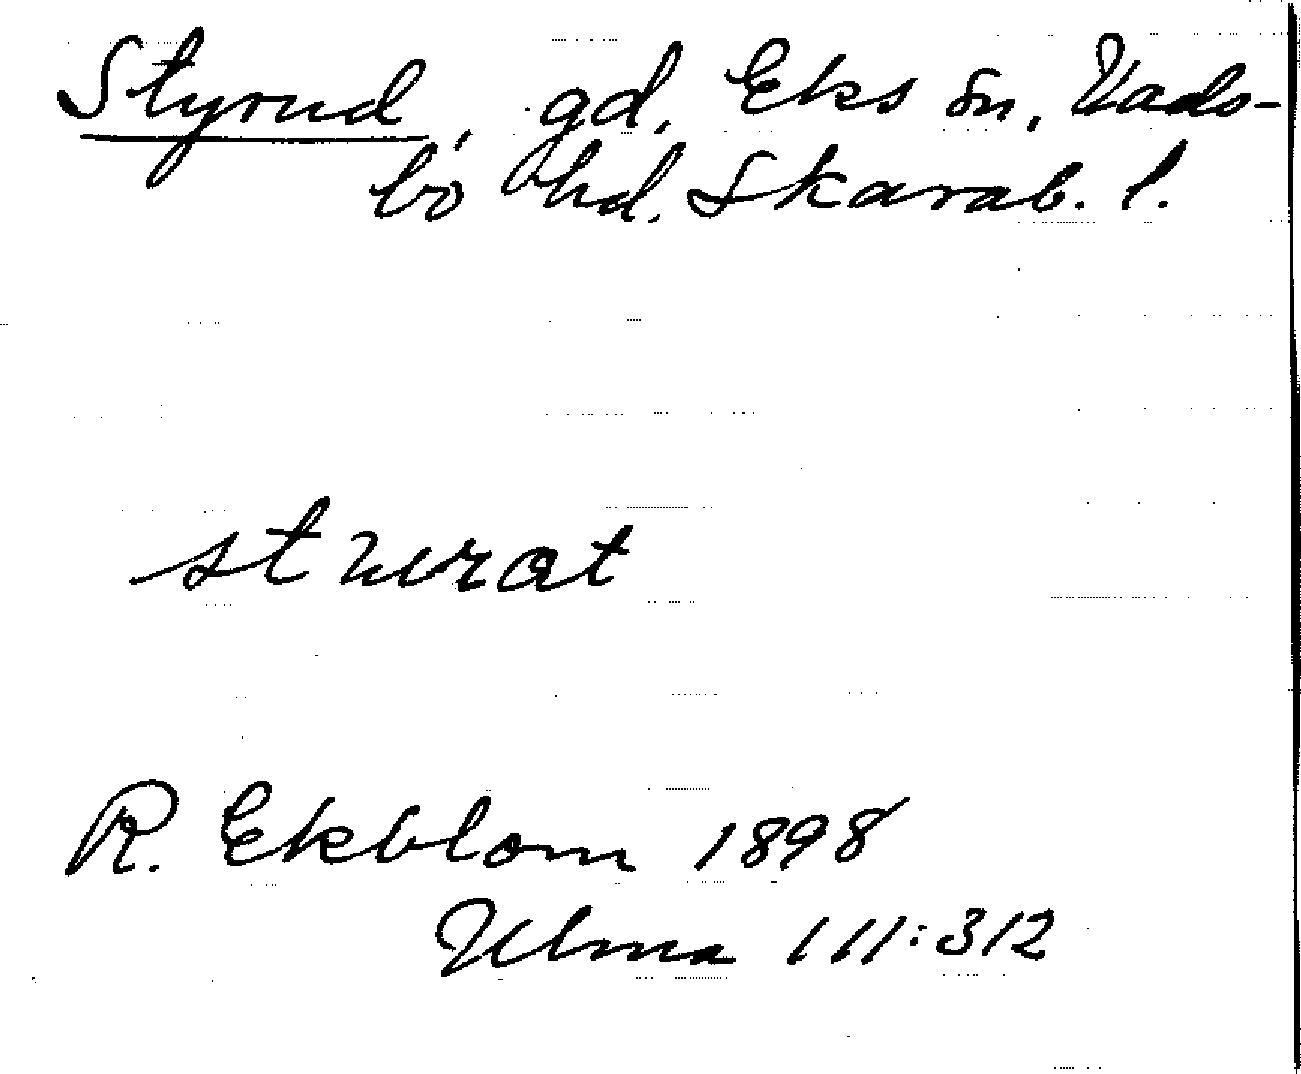 Styrud, gd, Eks sn, Vads-
bo hd. Skarab. l.
R. Ekblom 1898
Ulma 111:312